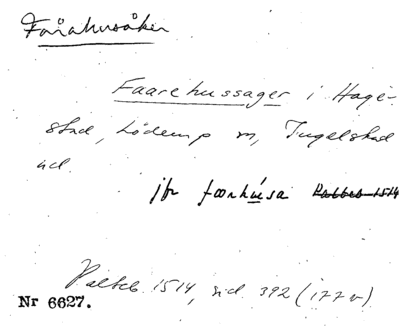 Fårahusåker
Faarehussager i Hage-
stad, Löderup sn, Ingelstad
hd.
jfr faarhúsa Palteb 1514
Palteb. 1514, sid. 392 (177 v)
Nr 6627.